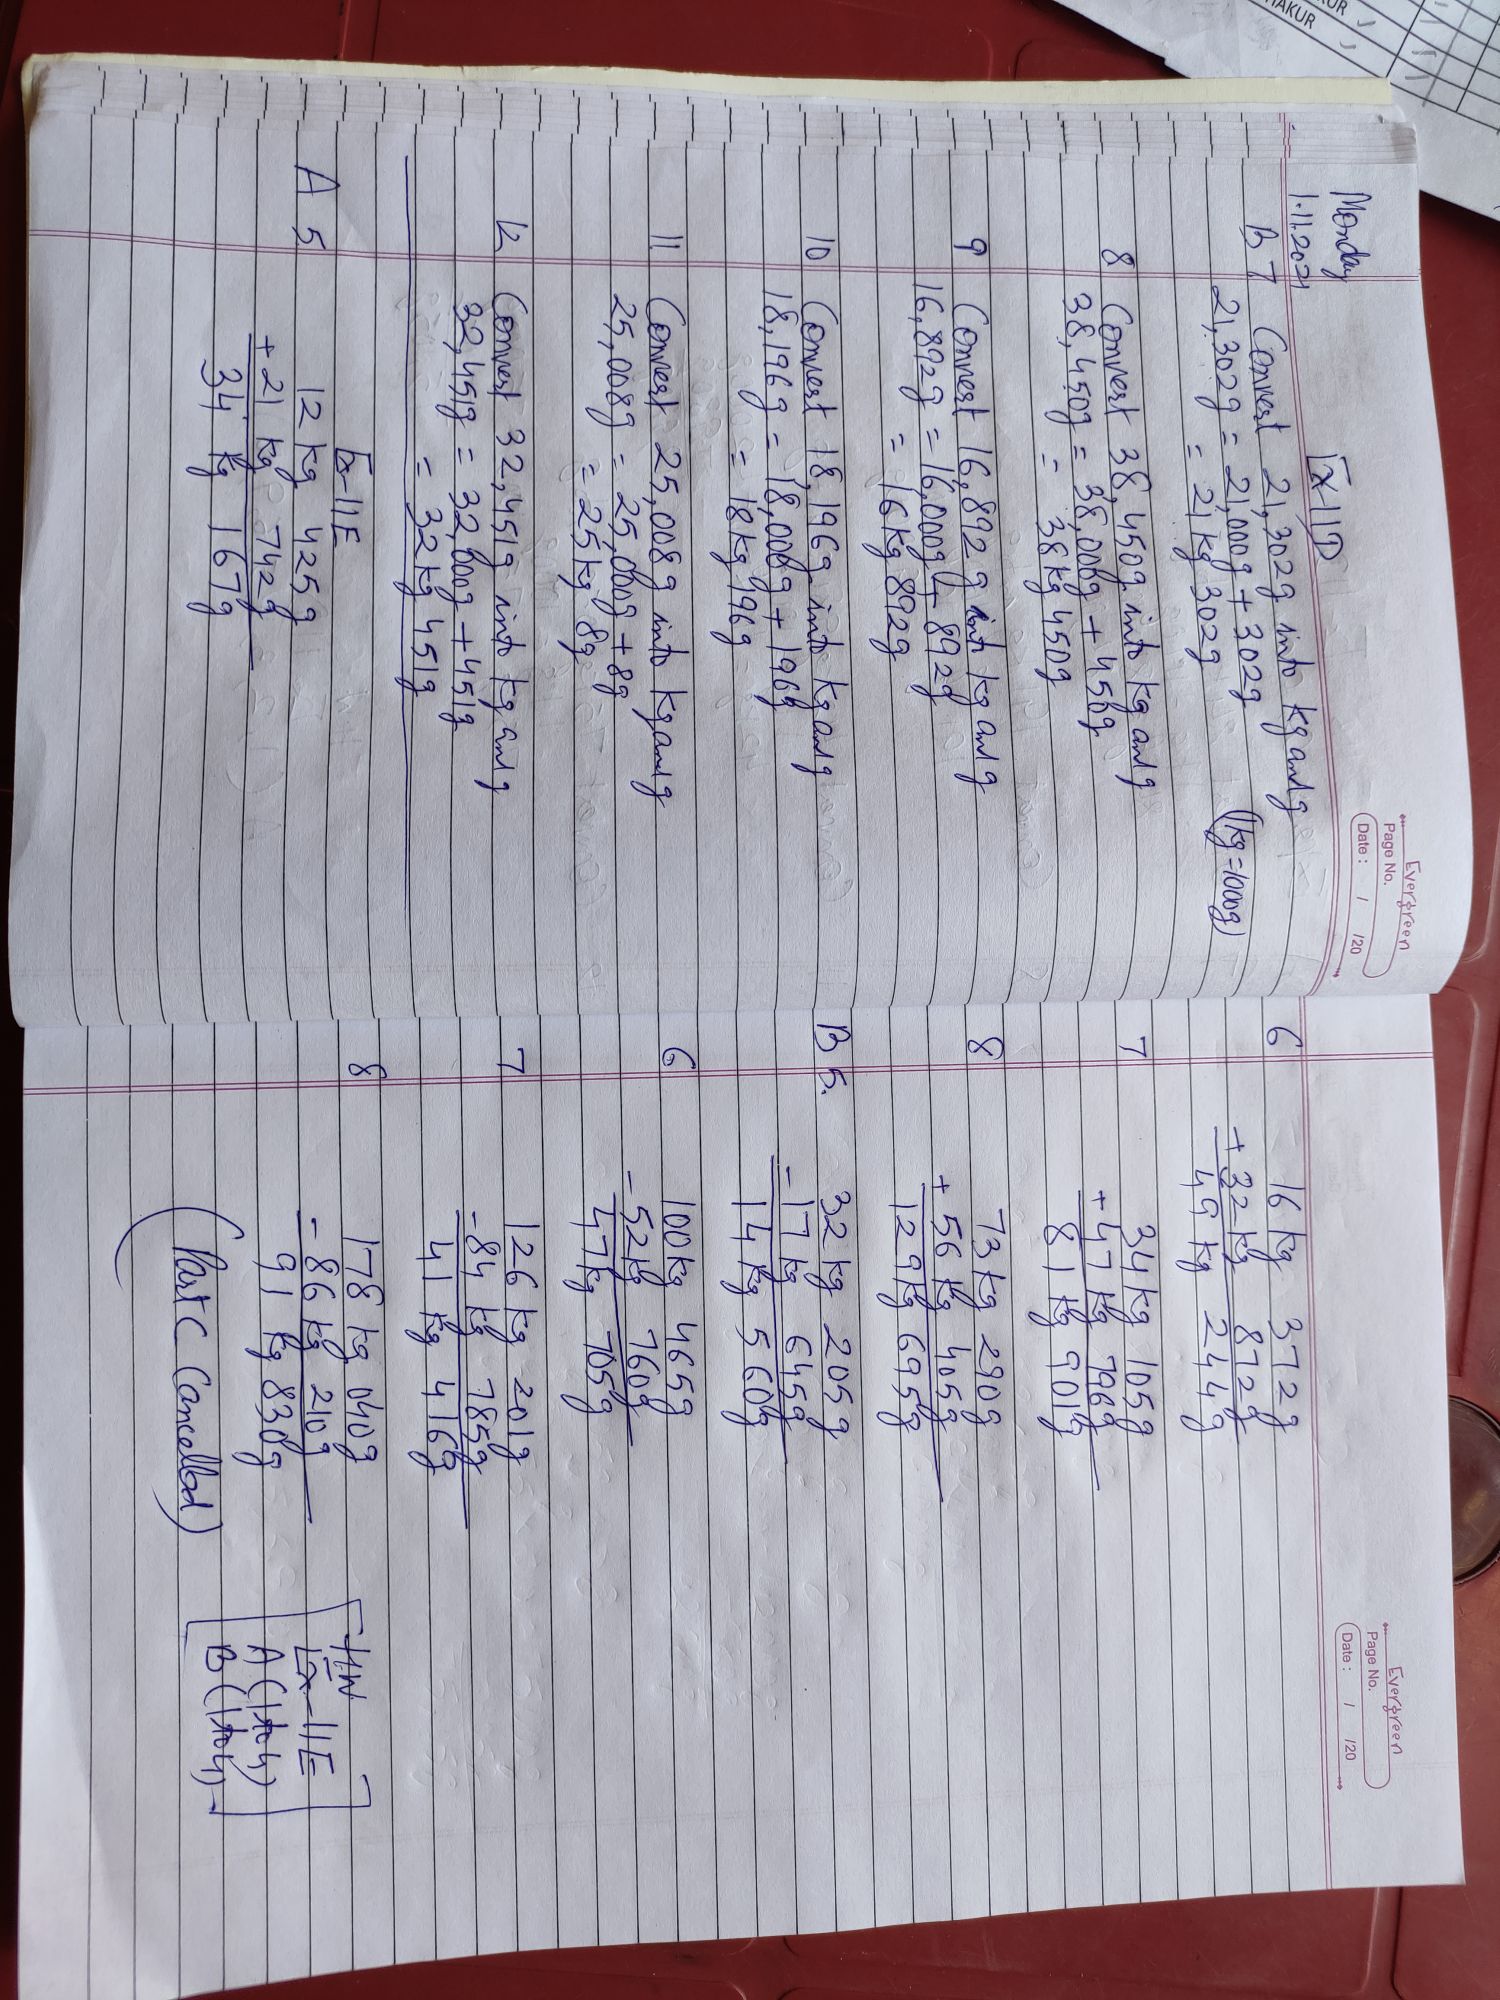 KUR
HAKUR
Evergreen
Page No.
Date : / /20
Monday
1.11.2021
Ex 11D
B 7 Convert 21,302g into kg and g
21,302g = 21,000g + 302g (1kg=1000g)
= 21 kg 302g
8 Convert 38,450g into kg and g
38,450g = 38,000g + 450g
= 38kg 450g
9 Convert 16,892g into kg and g
16,892g = 16,000g + 892g
= 16kg 892g
10 Convert 18,196g into kg and g
18,196g = 18,000g + 196g
= 18kg 196g
11 Convert 25,008g into kg and g
25,008g = 25,000g + 8g
= 25kg 8g
12 Convert 32,451g into kg and g
32,451g = 32,000g + 451g
= 32kg 451g
Ex-11E
A 5 12 kg 425g
+ 21 kg 742g
34 kg 167g
Evergreen
Page No.
Date : / /20
6 16 kg 372g
+ 32 kg 872g
49 kg 244g
7 34 kg 105g
+ 47 kg 796g
81 kg 901g
8 73 kg 290g
+ 56 kg 405g
129 kg 695g
B 5. 32 kg 205g
- 17 kg 645g
14 kg 560g
6 100 kg 465g
- 52 kg 760g
47 kg 705g
7 126 kg 201g
- 84 kg 785g
41 kg 416g
8 178 kg 040g
- 86 kg 210g
91 kg 830g
(Part C Cancelled)
HW
Ex-11E
A (1 to 4)
B (1 to 4)